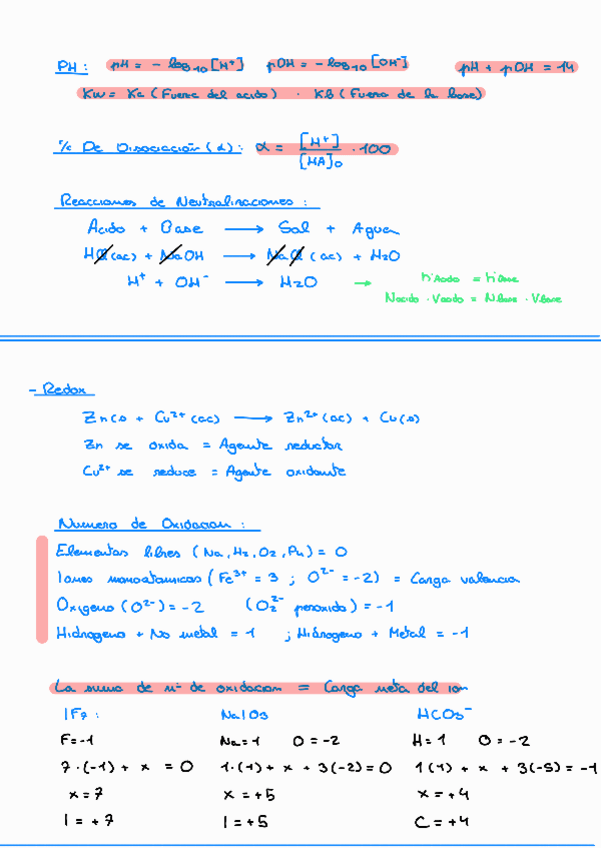 PH: pH = - log10 [H+] pOH = - log10 [OH-] pH + pOH = 14
Kw = Ka (Fuerza del acido) · Kb (Fuerza de la base)
% De Disociación (α): α = [H+] / [HA]0 · 100
Reacciones de Neutralizaciones:
Acido + Base → Sal + Agua
HCl(ac) + NaOH → NaCl (ac) + H2O
H+ + OH- → H2O → n°Acido = n°Base
Nacido · Vacido = NBase · VBase
- Redox
Zn(s) + Cu2+ (ac) → Zn2+ (ac) + Cu(s)
Zn se oxida = Agente reductor
Cu2+ se reduce = Agente oxidante
Numero de Oxidacion:
Elementos libres (Na, H2, O2, Pu) = 0
Iones monoatomicos (Fe3+ = 3 ; O2- = -2) = Carga valencia
Oxigeno (O2-) = -2 (O2 2- peroxido) = -1
Hidrogeno + No metal = 1 ; Hidrogeno + Metal = -1
La suma de nº de oxidacion = Carga neta del ion
IF7: NaIO3 HCO3-
F=-1 Na=1 O=-2 H=1 O=-2
7·(-1) + x = 0 1·(1) + x + 3(-2) = 0 1(1) + x + 3(-5) = -1
x=7 x=+5 x=+4
I=+7 I=+5 C=+4